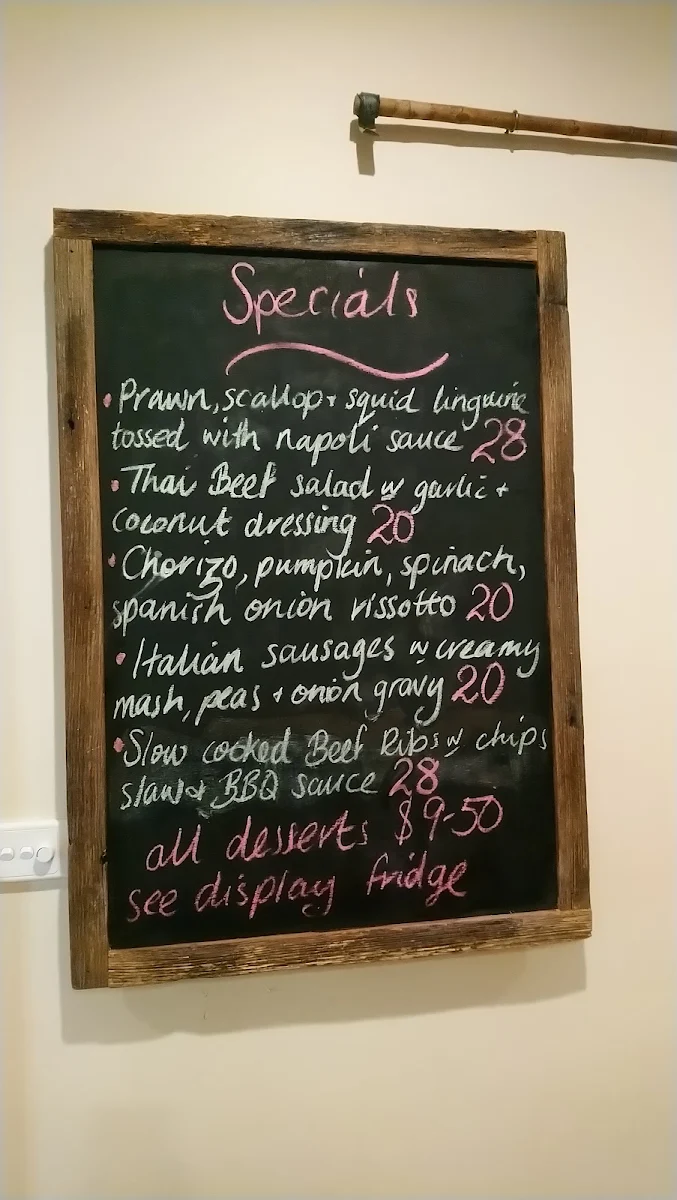 Specials
• Prawn, scallop + squid linguine
tossed with napoli sauce 28
• Thai Beef salad w garlic +
coconut dressing 20
• Chorizo, pumpkin, spinach,
spanish onion rissotto 20
• Italian sausages w creamy
mash, peas + onion gravy 20
• Slow cooked Beef Ribs w chips
slaw + BBQ sauce 28
all desserts $9-50
see display fridge